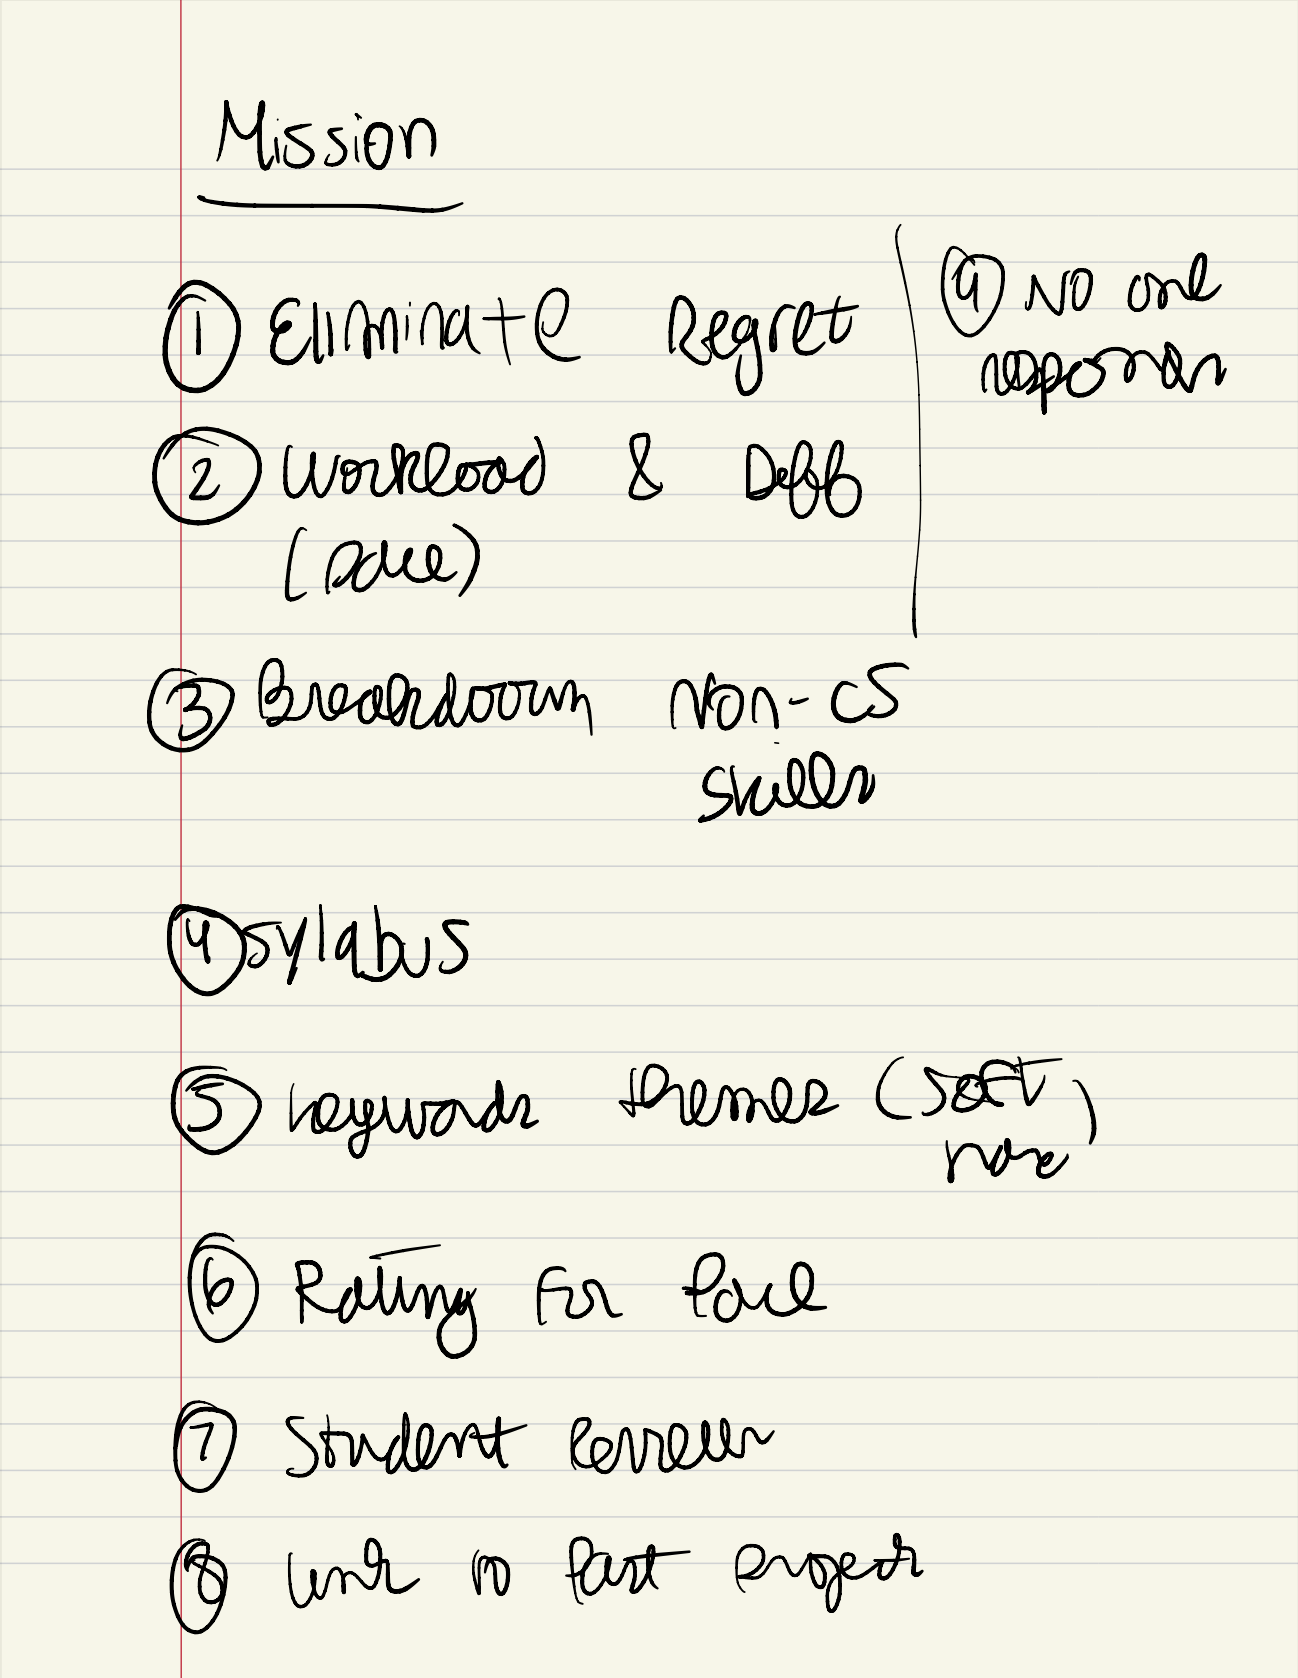 Mission
① Eliminate Regret
② Workload & Diff
(pace)
③ Breakdown Non-CS
skills
④ Sylabus
⑤ keywords themes (soft
more)
⑥ Rating For Pace
⑦ Student Review
⑧ Link to Past Projects
⑨ No one
responds